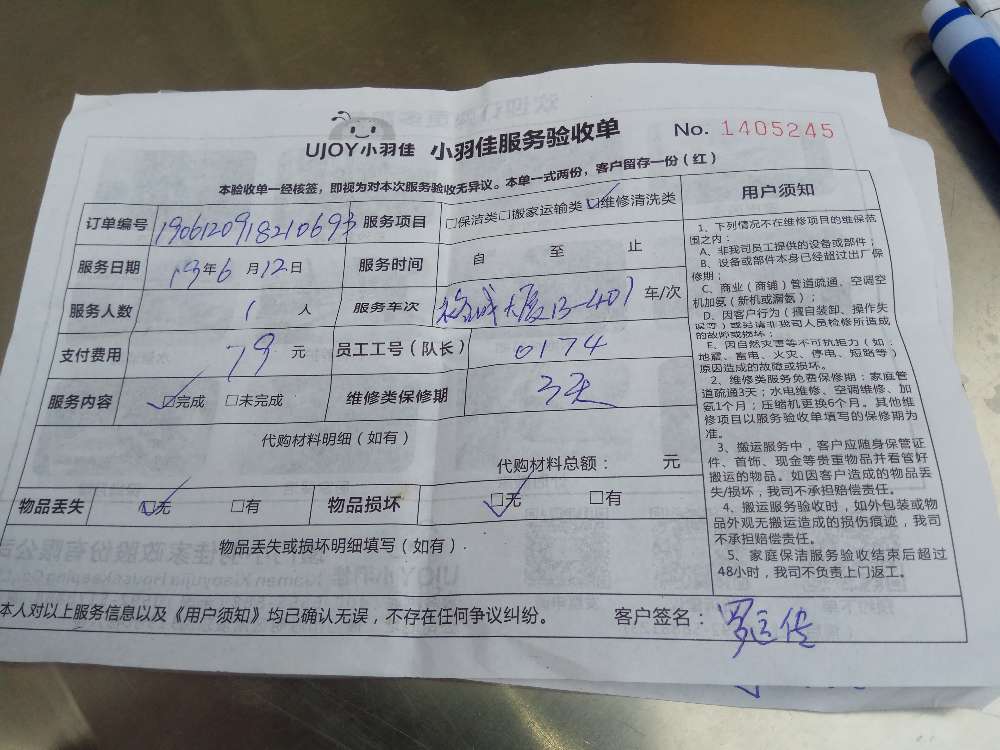 UJOY小羽佳 小羽佳服务验收单 No. 1405245
本验收单一经核签，即视为对本次服务验收无异议。本单一式两份，客户留存一份（红）
订单编号 服务项目 □保洁类□搬家运输类☑维修清洗类
服务日期 19年6月12日 服务时间 自 至 止
服务人数 1人 服务车次 大厦B-401 车/次
支付费用 79元 员工工号（队长） 0174
服务内容 ☑完成 □未完成 维修类保修期 3天
代购材料明细（如有）
代购材料总额： 元
物品丢失 ☑无 □有 物品损坏 ☑无 □有
物品丢失或损坏明细填写（如有）
本人对以上服务信息以及《用户须知》均已确认无误，不存在任何争议纠纷。 客户签名：
用户须知
1、下列情况不在维修项目的维保范
围之内：
A、非我司员工提供的设备或部件；
B、设备或部件本身已经超过出厂保
修期；
C、商业（商铺）管道疏通、空调空
机加氨（新机或漏氨）；
D、因客户行为（擅自装卸、操作失
误等）或邀请非我司人员检修所造成
的故障或损坏；
E、因自然灾害等不可抗拒力（如：
地震、畜电、火灾、停电、短路等）
原因造成的故障或损坏。
2、维修类服务免费保修期：家庭管
道疏通3天；水电维修、空调维修、加
氨1个月；压缩机更换6个月。其他维
修项目以服务验收单填写的保修期为
准。
3、搬运服务中，客户应随身保管证
件、首饰、现金等贵重物品并看管好
搬运的物品。如因客户造成的物品丢
失/损坏，我司不承担赔偿责任。
4、搬运服务验收时，如外包装或物
品外观无搬运造成的损伤痕迹，我司
不承担赔偿责任。
5、家庭保洁服务验收结束后超过
48小时，我司不负责上门返工。